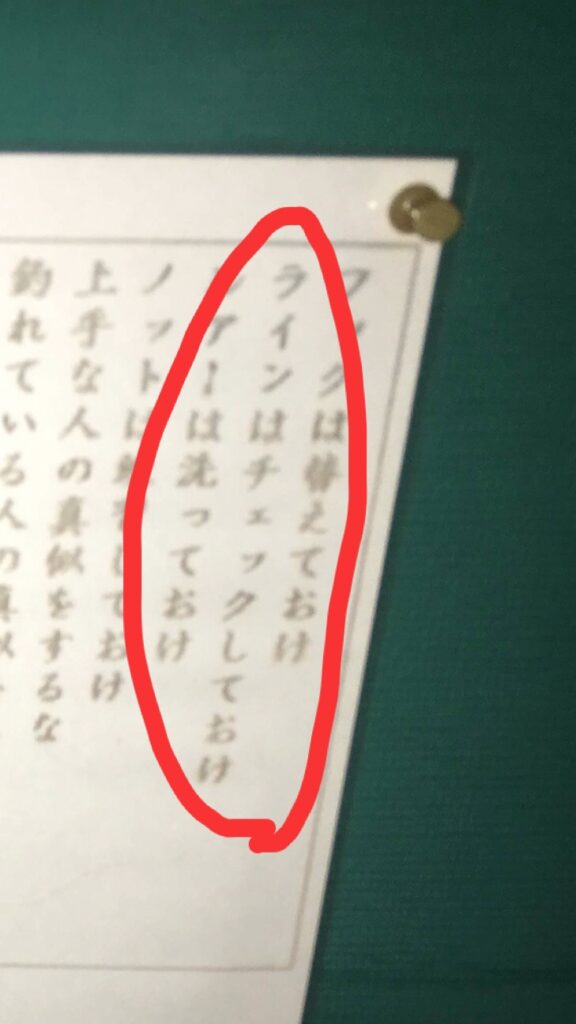 フックは替えておけ
ラインはチェックしておけ
ルアーは洗っておけ
ノットは をしておけ
上手な人の真似をするな
釣れている人の真似